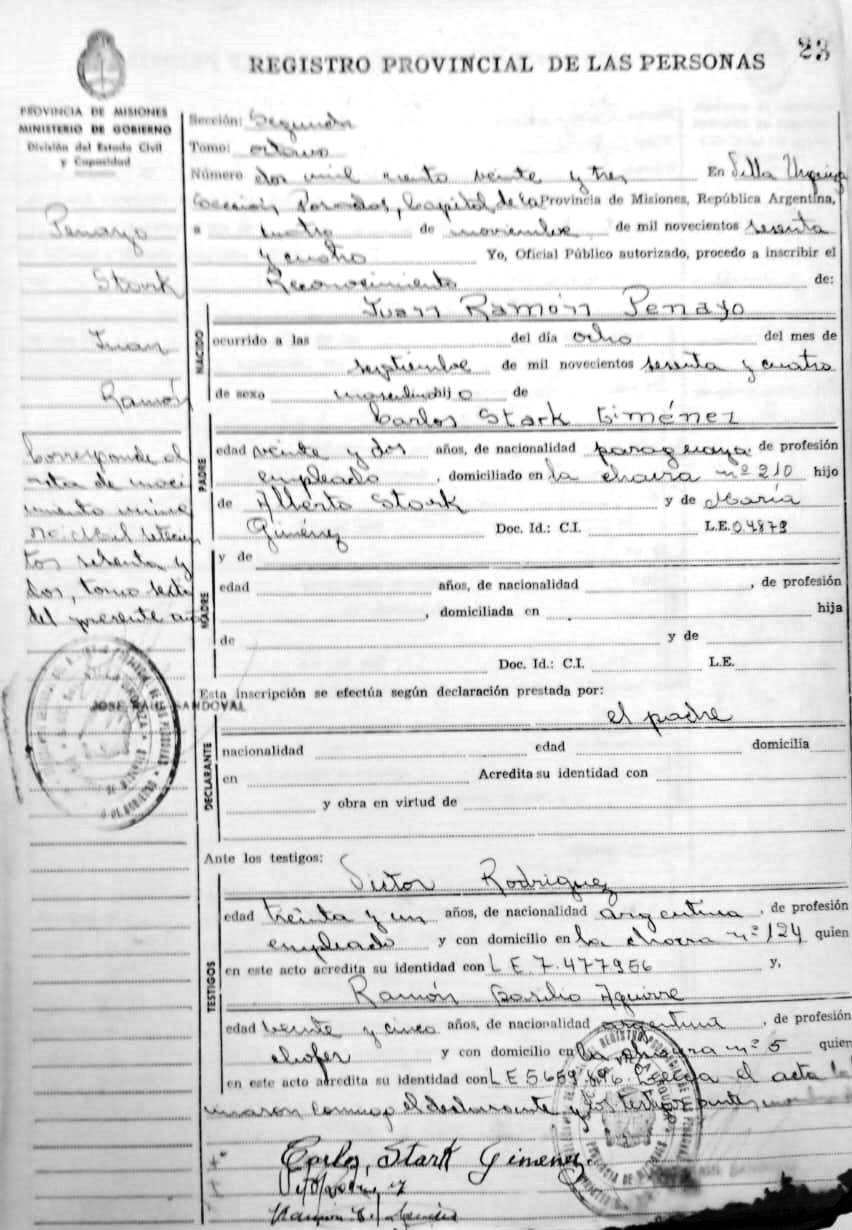 23
REGISTRO PROVINCIAL DE LAS PERSONAS
PROVINCIA DE MISIONES
MINISTERIO DE GOBIERNO
División del Estado Civil
y Capacidad
Penayo
Stark
Juan
Ramón
Corresponde al
acta de naci
miento número
seis mil setecien
tos setenta y
dos, tomo sexto
del presente año
JOSE RAUL SANDOVAL
Sección: Segunda
Tomo: octavo
Número dos mil ciento veinte y tres En Villa Urquiza
Sección Posadas, Capital de la Provincia de Misiones, República Argentina,
a cuatro de noviembre de mil novecientos sesenta
y cuatro Yo, Oficial Público autorizado, procedo a inscribir el
Reconocimiento de:
Juan Ramón Penayo
NACIDO
ocurrido a las del día ocho del mes de
septiembre de mil novecientos sesenta y cuatro
de sexo masculino hijo de
Carlos Stark Giménez
PADRE
edad veinte y dos años, de nacionalidad paraguaya de profesión
empleado, domiciliado en la chacra nº 210 hijo
de Alberto Stark y de María
Giménez Doc. Id.: C.I. L.E. 04879
MADRE
y de
edad años, de nacionalidad, de profesión
, domiciliada en hija
de y de
Doc. Id.: C.I. L.E.
Esta inscripción se efectúa según declaración prestada por:
el padre
DECLARANTE
nacionalidad edad domicilia
en Acredita su identidad con
y obra en virtud de
Ante los testigos:
Victor Rodriguez
TESTIGOS
edad treinta y un años, de nacionalidad argentina, de profesión
empleado y con domicilio en la chacra nº 124 quien
en este acto acredita su identidad con L E 7.477956 y,
Ramón Basilio Aguirre
edad veinte y cinco años, de nacionalidad argentina, de profesión
chofer y con domicilio en la chacra nº 5 quien
en este acto acredita su identidad con L E 5659.696. el acta la
conmigo el declarante y los testigos
Carlos Stark Gimenez